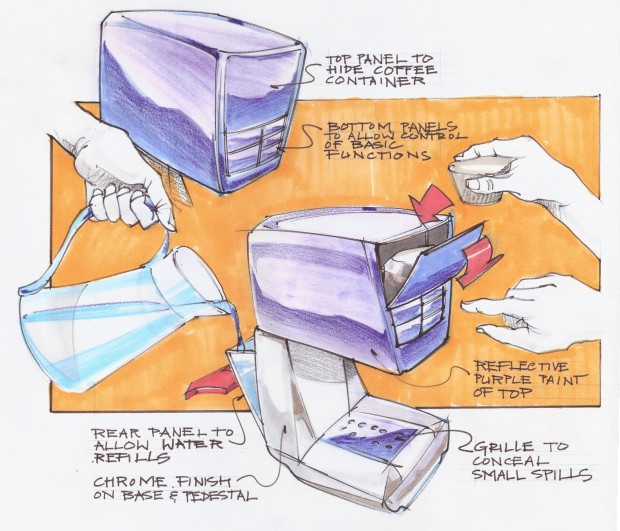 TOP PANEL TO
HIDE COFFEE
CONTAINER
BOTTOM PANELS
TO ALLOW CONTROL
OF BASIC
FUNCTIONS
REFLECTIVE
PURPLE PAINT
OF TOP
REAR PANEL TO
ALLOW WATER
REFILLS
GRILLE TO
CONCEAL
SMALL SPILLS
CHROME FINISH
ON BASE & PEDESTAL